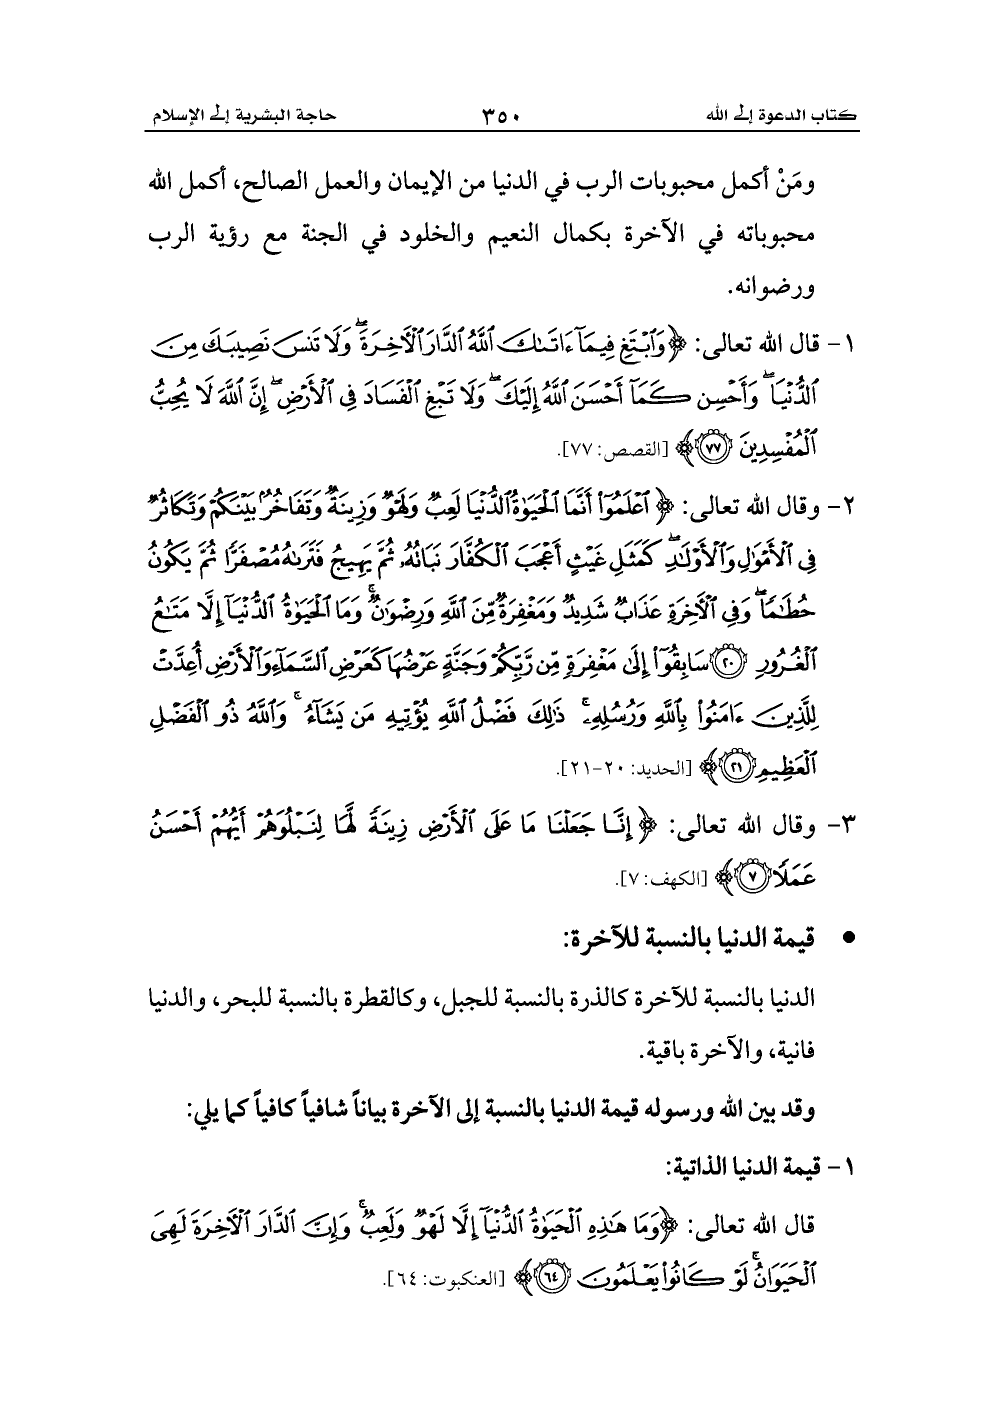 كتاب الدعوة إلى الله ٣٥٠ حاجة البشرية إلى الإسلام
ومَنْ أكمل محبوبات الرب في الدنيا من الإيمان والعمل الصالح، أكمل الله
محبوباته في الآخرة بكمال النعيم والخلود في الجنة مع رؤية الرب
ورضوانه.
١- قال الله تعالى: ﴿وَٱبۡتَغِ فِيمَآ ءَاتَىٰكَ ٱللَّهُ ٱلدَّارَ ٱلۡأٓخِرَةَۖ وَلَا تَنسَ نَصِيبَكَ مِنَ
ٱلدُّنۡيَاۖ وَأَحۡسِن كَمَآ أَحۡسَنَ ٱللَّهُ إِلَيۡكَۖ وَلَا تَبۡغِ ٱلۡفَسَادَ فِي ٱلۡأَرۡضِۖ إِنَّ ٱللَّهَ لَا يُحِبُّ
ٱلۡمُفۡسِدِينَ ٧٧﴾ [القصص: ٧٧].
٢- وقال الله تعالى: ﴿ٱعۡلَمُوٓاْ أَنَّمَا ٱلۡحَيَوٰةُ ٱلدُّنۡيَا لَعِبٞ وَلَهۡوٞ وَزِينَةٞ وَتَفَاخُرُۢ بَيۡنَكُمۡ وَتَكَاثُرٞ
فِي ٱلۡأَمۡوَٰلِ وَٱلۡأَوۡلَٰدِۖ كَمَثَلِ غَيۡثٍ أَعۡجَبَ ٱلۡكُفَّارَ نَبَاتُهُۥ ثُمَّ يَهِيجُ فَتَرَىٰهُ مُصۡفَرّٗا ثُمَّ يَكُونُ
حُطَٰمٗاۖ وَفِي ٱلۡأٓخِرَةِ عَذَابٞ شَدِيدٞ وَمَغۡفِرَةٞ مِّنَ ٱللَّهِ وَرِضۡوَٰنٞۚ وَمَا ٱلۡحَيَوٰةُ ٱلدُّنۡيَآ إِلَّا مَتَٰعُ
ٱلۡغُرُورِ ٢٠ سَابِقُوٓاْ إِلَىٰ مَغۡفِرَةٖ مِّن رَّبِّكُمۡ وَجَنَّةٍ عَرۡضُهَا كَعَرۡضِ ٱلسَّمَآءِ وَٱلۡأَرۡضِ أُعِدَّتۡ
لِلَّذِينَ ءَامَنُواْ بِٱللَّهِ وَرُسُلِهِۦۚ ذَٰلِكَ فَضۡلُ ٱللَّهِ يُؤۡتِيهِ مَن يَشَآءُۚ وَٱللَّهُ ذُو ٱلۡفَضۡلِ
ٱلۡعَظِيمِ ٢١﴾ [الحديد: ٢٠-٢١].
٣- وقال الله تعالى: ﴿إِنَّا جَعَلۡنَا مَا عَلَى ٱلۡأَرۡضِ زِينَةٗ لَّهَا لِنَبۡلُوَهُمۡ أَيُّهُمۡ أَحۡسَنُ
عَمَلٗا ٧﴾ [الكهف: ٧].
● قيمة الدنيا بالنسبة للآخرة:
الدنيا بالنسبة للآخرة كالذرة بالنسبة للجبل، وكالقطرة بالنسبة للبحر، والدنيا
فانية، والآخرة باقية.
وقد بين الله ورسوله قيمة الدنيا بالنسبة إلى الآخرة بياناً شافياً كافياً كما يلي:
١- قيمة الدنيا الذاتية:
قال الله تعالى: ﴿وَمَا هَٰذِهِ ٱلۡحَيَوٰةُ ٱلدُّنۡيَآ إِلَّا لَهۡوٞ وَلَعِبٞۚ وَإِنَّ ٱلدَّارَ ٱلۡأٓخِرَةَ لَهِيَ
ٱلۡحَيَوَانُۚ لَوۡ كَانُواْ يَعۡلَمُونَ ٦٤﴾ [العنكبوت: ٦٤].